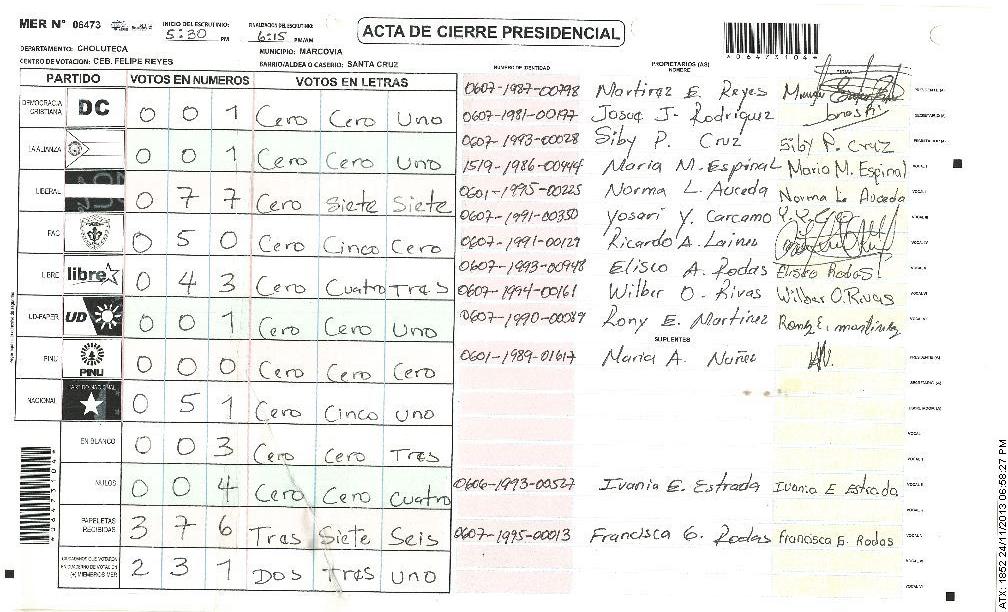 MER N° 06473
INICIO DEL ESCRUTINIO: 5:30 PM
FINALIZACION DEL ESCRUTINIO: 6:15 PM/AM
ACTA DE CIERRE PRESIDENCIAL
*06473104*
DEPARTAMENTO: CHOLUTECA
MUNICIPIO: MARCOVIA
CENTRO DE VOTACION: CEB. FELIPE REYES
BARRIO/ALDEA O CASERIO: SANTA CRUZ
PARTIDO VOTOS EN NUMEROS VOTOS EN LETRAS
DEMOCRACIA CRISTIANA DC 0 0 1 Cero Cero Uno
LA ALIANZA 0 0 1 Cero Cero Uno
LIBERAL 0 7 7 Cero Siete Siete
PAC 0 5 0 Cero Cinco Cero
LIBRE libre 0 4 3 Cero Cuatro Tres
UD-FAPER UD 0 0 1 Cero Cero Uno
PINU PINU 0 0 0 Cero Cero Cero
NACIONAL 0 5 1 Cero Cinco Uno
EN BLANCO 0 0 3 Cero Cero Tres
NULOS 0 0 4 Cero Cero Cuatro
PAPELETAS RECIBIDAS 3 7 6 Tres Siete Seis
CIUDADANOS QUE VOTARON EN CUADERNO DE VOTACION (+) MIEMBROS MER 2 3 1 Dos Tres Uno
NUMERO DE IDENTIDAD PROPIETARIOS (AS) NOMBRE FIRMA
0607-1987-00798 Martinez E. Reyes
0607-1981-00197 Josue J. Rodriguez
0607-1993-00028 Siby P. Cruz Siby P. Cruz
1519-1986-00444 Maria M. Espinal Maria M. Espinal
0601-1995-00225 Norma L. Auceda Norma L. Auceda
0607-1991-00350 Yosari Y. Carcamo
0607-1991-00129 Ricardo A. Lainez
0607-1993-00948 Elisco A. Rodas Eliseo Rodas
0607-1994-00161 Wilber O. Rivas Wilber O. Rivas
0607-1990-00089 Rony E. Martinez Rony E. martinez
SUPLENTES
0601-1989-01617 Maria A. Nuñez
0606-1993-00527 Ivania E. Estrada Ivania E Estrada
0607-1995-00013 Francisca G. Rodas Francisca G. Rodas
*06473104*
ATX: 1852 24/11/2013 06:58:27 PM